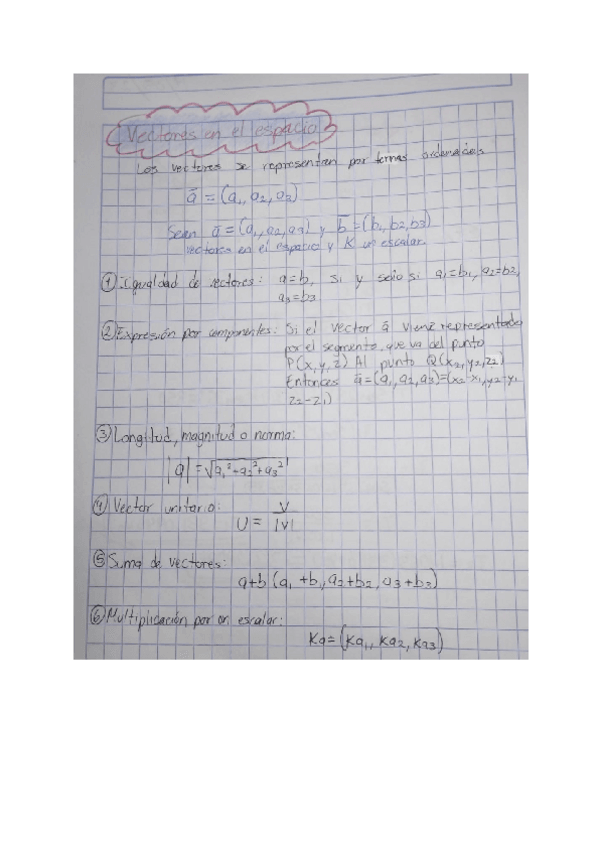 Vectores en el espacio
Los vectores se representan por ternas ordenadas
ā = (a₁, a₂, a₃)
Sean ā = (a₁, a₂, a₃) y b̄ = (b₁, b₂, b₃)
vectores en el espacio y K un escalar.
① Igualdad de vectores: a=b, si y solo si a₁=b₁, a₂=b₂,
a₃=b₃
② Expresión por componentes: Si el vector ā viene representado
por el segmento, que va del punto
P(x,y,z) Al punto Q(x₂,y₂,z₂)
Entonces ā=(a₁,a₂,a₃)=(x₂-x₁,y₂-y₁
z₂-z₁)
③ Longitud, magnitud o norma:
|a| = √a₁²+a₂²+a₃²
④ Vector unitario: V
U = |V|
⑤ Suma de vectores:
a+b (a₁+b₁, a₂+b₂, a₃+b₃)
⑥ Multiplicación por un escalar:
Ka=(Ka₁, Ka₂, Ka₃)